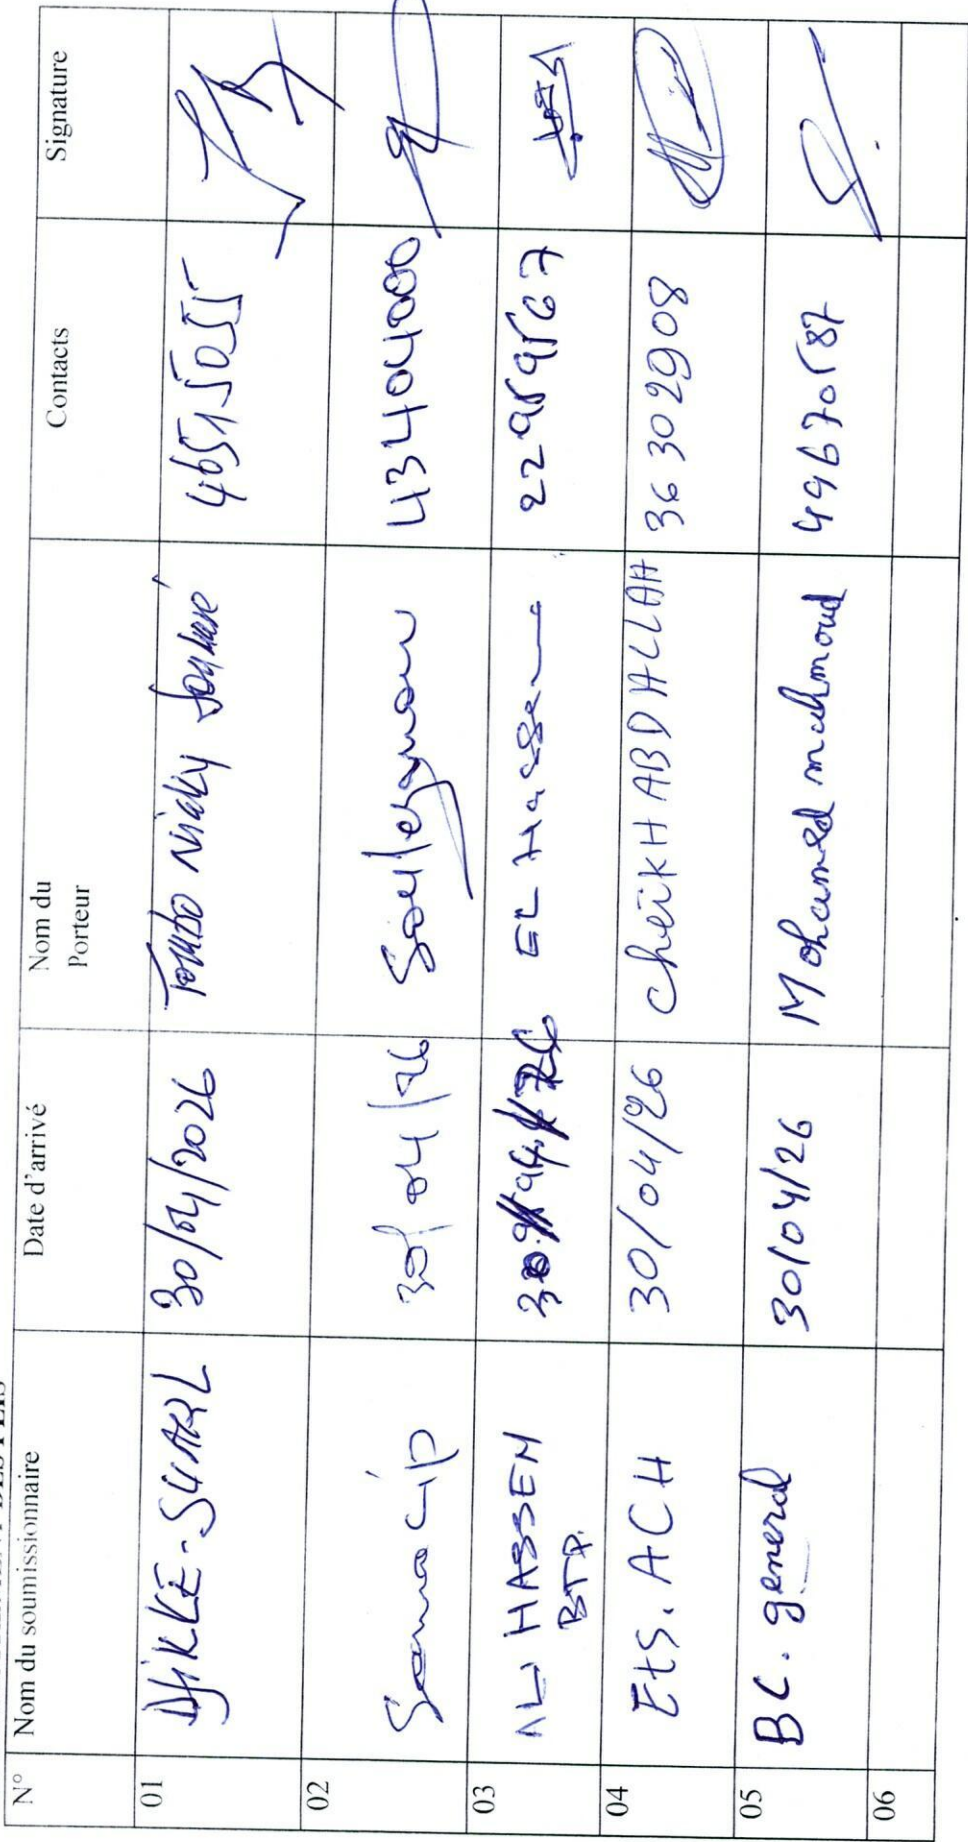 N° Nom du soumissionnaire Date d'arrivé Nom du Porteur Contacts Signature
01 30/04/2026 46515055
02 Samacip 30/04/26 Souleymane 43404000
03 AL HASSEN BTP. EL Hassen 22959567
04 Ets. ACH 30/04/26 cheikH ABDALLAH 36302908
05 BC. general 30/04/26 Mohamed mahmoud 49670587
06